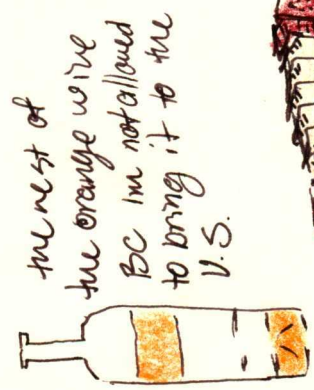 the rest of
the orange wine
BC im not allowed
to bring it to the
U.S.